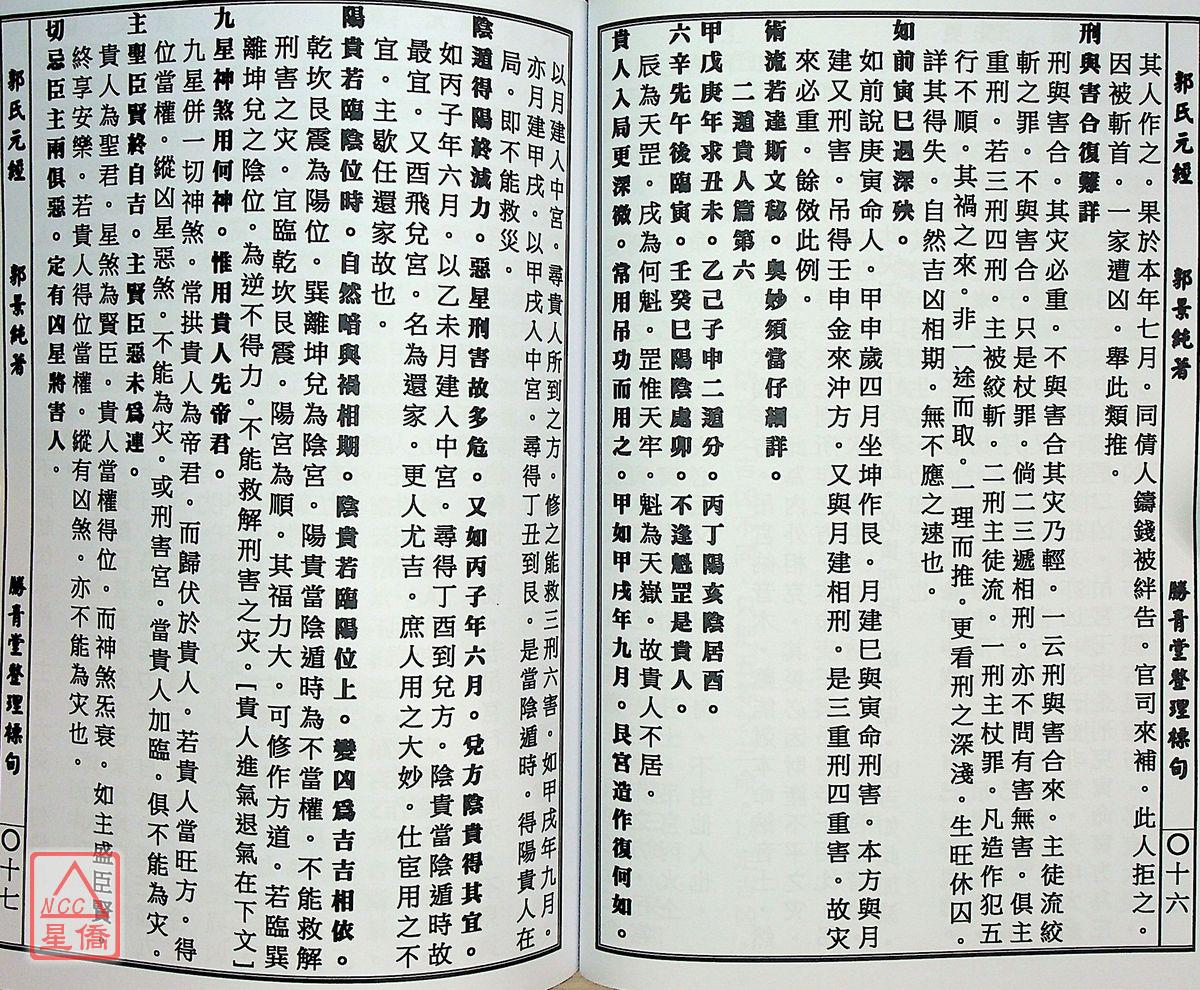 郭氏元經　郭景純著　勝青堂整理標句　〇十六
其人作之．果於本年七月．同倩人鑄錢被絆告．官司來補．此人拒之．
因被斬首．一家遭凶．舉此類推．
刑與害合復難詳
刑與害合．其灾必重．不與害合其灾乃輕．一云刑與害合來．主徒流絞
斬之罪．不與害合．只是杖罪．倘二三遞相刑．亦不問有害無害．俱主
重刑．若三刑四刑．主被絞斬．二刑主徒流．一刑主杖罪．凡造作犯五
行不順．其禍之來．非一途而取．一理而推．更看刑之深淺．生旺休囚．
詳其得失．自然吉凶相期．無不應之速也．
如前寅巳遇深殃．
如前說庚寅命人．甲申歲四月坐坤作艮．月建巳與寅命刑害．本方與月
建又刑害．吊得壬申金來沖方．又與月建相刑．是三重刑四重害．故灾
來必重．餘倣此例．
術流若達斯文秘．奥妙須當仔細詳．
二遁貴人篇第六
甲戊庚年求丑未．乙己子申二遁分．丙丁陽亥陰居酉．
六辛先午後臨寅．壬癸巳陽陰處卯．不逢魁罡是貴人．
辰為天罡．戌為何魁．罡惟天牢．魁為天嶽．故貴人不居．
貴人入局更深微．常用吊功而用之．甲如甲戌年九月．艮宮造作復何如．
以月建入中宮．尋貴人所到之方．修之能救三刑六害．如甲戌年九月．
亦月建甲戌．以甲戌入中宮．尋得丁丑到艮．是當陰遁時．得陽貴人在
局．即不能救災．
陰遁得陽終減力．惡星刑害故多危．又如丙子年六月．兌方陰貴得其宜．
如丙子年六月．以乙未月建入中宮．尋得丁酉到兌方．陰貴當陰遁時故
最宜．又酉飛兌宮．名為還家．更人尤吉．庶人用之大妙．仕宦用之不
宜．主歇任還家故也．
陽貴若臨陰位時．自然暗與禍相期．陰貴若臨陽位上．變凶爲吉吉相依．
乾坎艮震為陽位．巽離坤兌為陰宮．陽貴當陰遁時為不當權．不能救解
刑害之灾．宜臨乾坎艮震．陽宮為順．其福力大．可修作方道．若臨巽
離坤兌之陰位．為逆不得力．不能救解刑害之灾．[貴人進氣退氣在下文]
九星神煞用何神．惟用貴人先帝君．
九星併一切神煞．常拱貴人為帝君．而歸伏於貴人．若貴人當旺方．得
位當權．縱凶星惡煞．不能為灾．或刑害宮．當貴人加臨．俱不能為灾．
主聖臣賢終自吉．主賢臣惡未爲連．
貴人為聖君．星煞為賢臣．貴人當權得位．而神煞炁衰．如主盛臣賢．
終享安樂．若貴人得位當權．縱有凶煞．亦不能為灾也．
切忌臣主兩俱惡．定有凶星將害人．
郭氏元經　郭景純著　勝青堂整理標句　〇十七
NCC
星僑